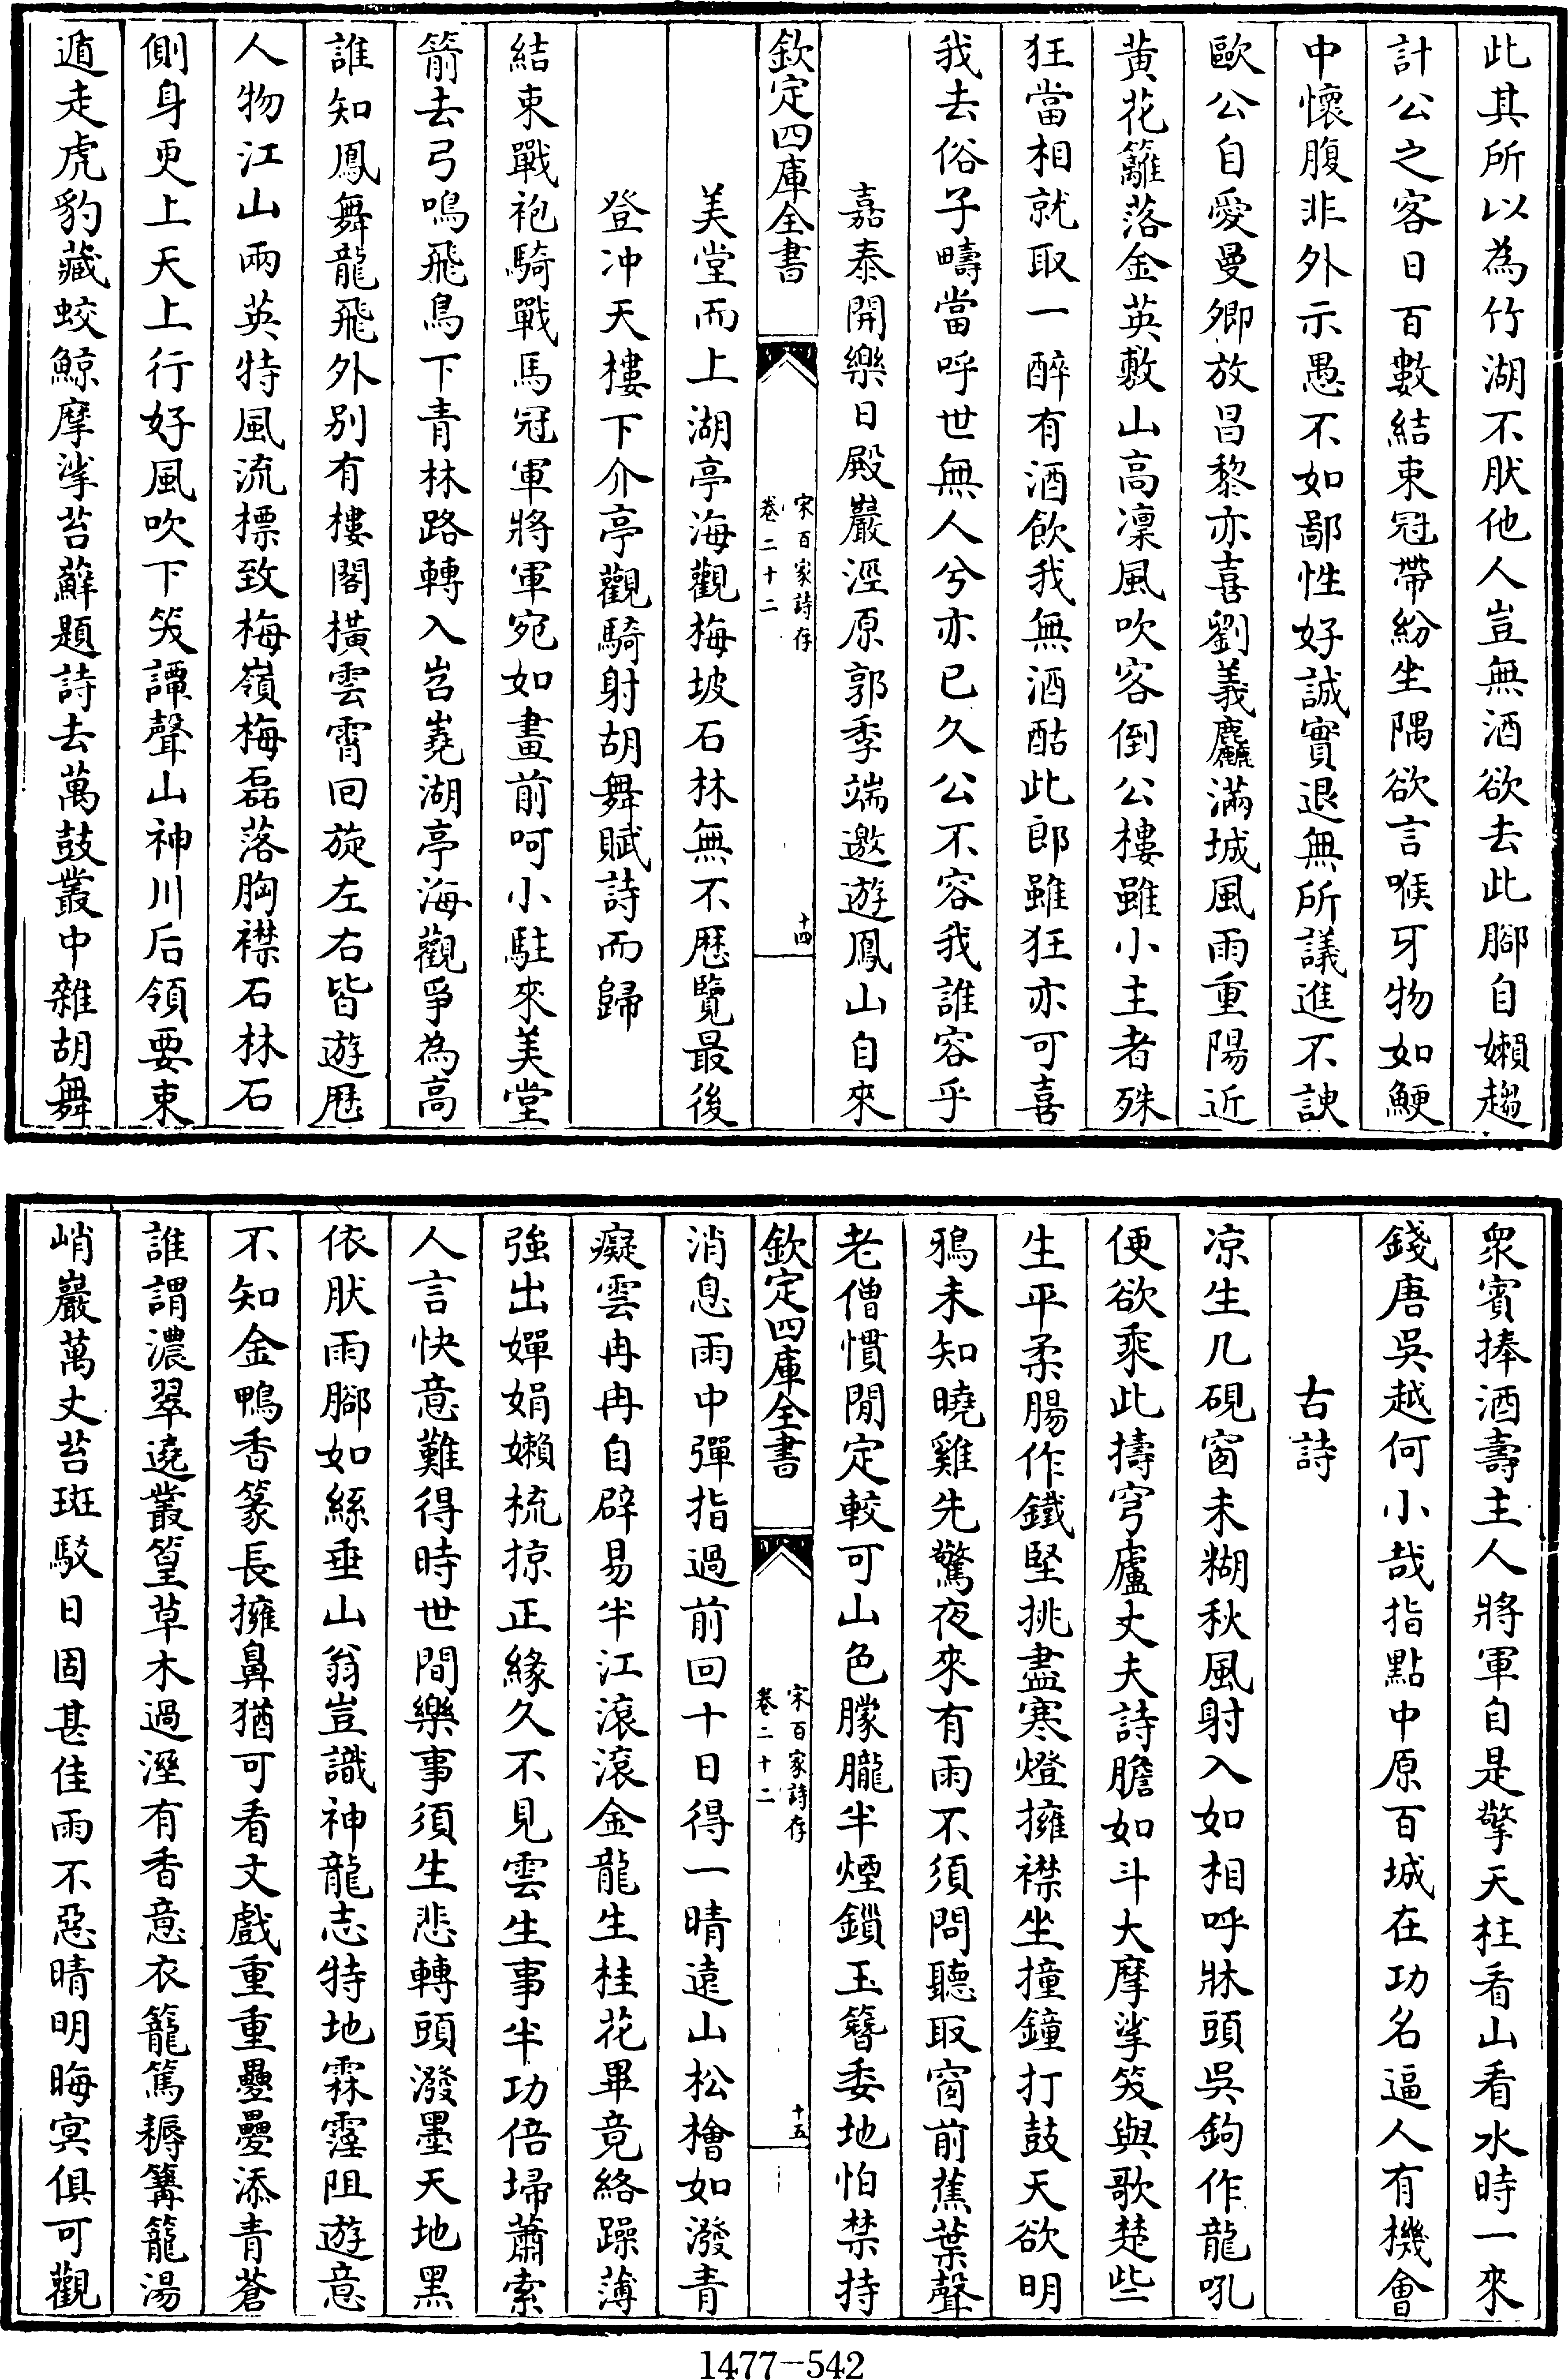 此其所以為竹湖不肰他人豈無酒欲去此腳自嬾趨
計公之客日百數結束冠帶紛坐隅欲言喉牙物如鯁
中懷腹非外示愚不如鄙性好誠實退無所議進不諛
歐公自愛曼卿放昌黎亦喜劉義麤滿城風雨重陽近
黃花籬落金英敷山高凜風吹客倒公樓雖小主者殊
狂當相就取一醉有酒飲我無酒酤此郎雖狂亦可喜
我去俗子疇當呼世無人兮亦已久公不容我誰容乎
嘉泰開樂日殿巖涇原郭季端邀遊鳳山自來
欽定四庫全書
宋百家詩存
卷二十二
十四
美堂而上湖亭海觀梅坡石林無不歷覽最後
登冲天樓下介亭觀騎射胡舞賦詩而歸
結束戰袍騎戰馬冠軍將軍宛如畫前呵小駐來美堂
箭去弓鳴飛鳥下青林路轉入岧嶤湖亭海觀爭為高
誰知鳳舞龍飛外別有樓閣橫雲霄回旋左右皆遊歷
人物江山兩英特風流標致梅嶺梅磊落胸襟石林石
側身更上天上行好風吹下笑譚聲山神川后領要束
遁走虎豹藏蛟鯨摩挲苔蘚題詩去萬鼓叢中雜胡舞
眾賓捧酒壽主人將軍自是擎天柱看山看水時一來
錢唐吳越何小哉指點中原百城在功名逼人有機會
古詩
凉生几硯窗未糊秋風射入如相呼牀頭吳鉤作龍吼
便欲乘此擣穹廬丈夫詩膽如斗大摩挲笑與歌楚些
生平柔腸作鐵堅挑盡寒燈擁襟坐撞鐘打鼓天欲明
鴉未知曉雞先驚夜來有雨不須問聽取窗前蕉葉聲
老僧慣閒定較可山色朦朧半煙鎖玉簪委地怕禁持
欽定四庫全書
宋百家詩存
卷二十二
十五
消息雨中彈指過前回十日得一晴遠山松檜如潑青
癡雲冉冉自辟易半江滾滾金龍生桂花畢竟絡躁薄
強出嬋娟嬾梳掠正緣久不見雲生事半功倍埽蕭索
人言快意難得時世間樂事須生悲轉頭潑墨天地黑
依肰雨腳如絲垂山翁豈識神龍志特地霖霪阻遊意
不知金鴨香篆長擁鼻猶可看文戲重重疊疊添青蒼
誰謂濃翠遶叢篁草木過溼有香意衣籠篤耨篝籠湯
峭巖萬丈苔斑駁日固甚佳雨不惡晴明晦冥俱可觀
1477-542